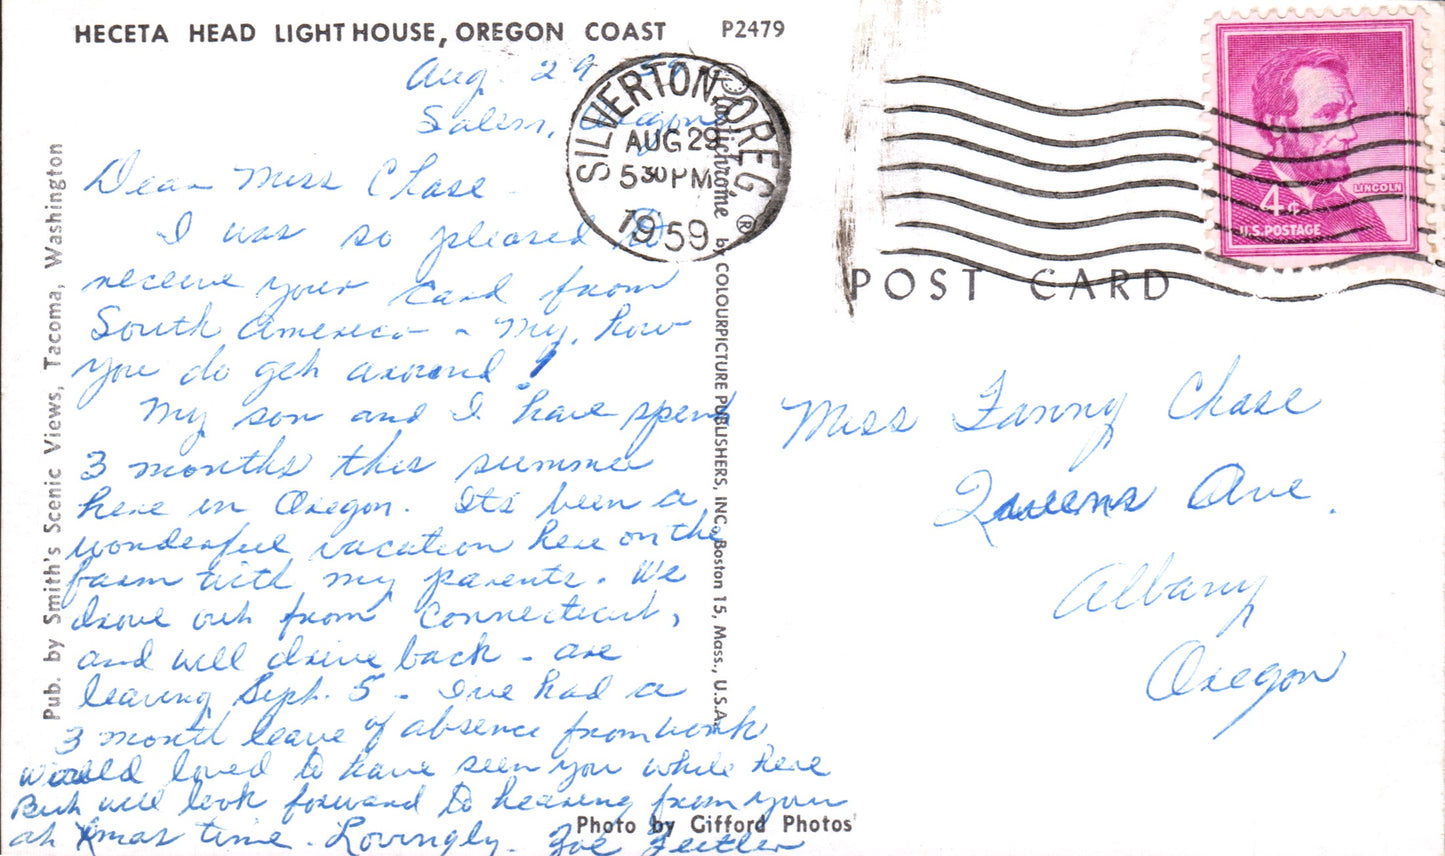 HECETA HEAD LIGHTHOUSE, OREGON COAST P2479
Aug 29 59
Salem, Oregon
Dear Miss Chase
I was so pleased to
receive your card from
South America - My, how
you do get around!
My son and I have spent
3 months this summer
here in Oregon. It's been a
wonderful vacation here on the
farm with my parents. We
drove out from Connecticut,
and will drive back - are
leaving Sept. 5 - I've had a
3 month leave of absence from work
would loved to have seen you while here
But will look forward to hearing from you
at Xmas time. Lovingly. Zoe
Photo by Gifford Photos
Pub. by Smith's Scenic Views, Tacoma, Washington
Plastichrome ® by COLOURPICTURE PUBLISHERS, INC. Boston 15, Mass., U.S.A.
SILVERTON OREG
AUG 29
5 30 PM
1959
LINCOLN
4¢
U.S. POSTAGE
POST CARD
Miss Fanny Chase
Queens Ave.
Albany
Oregon